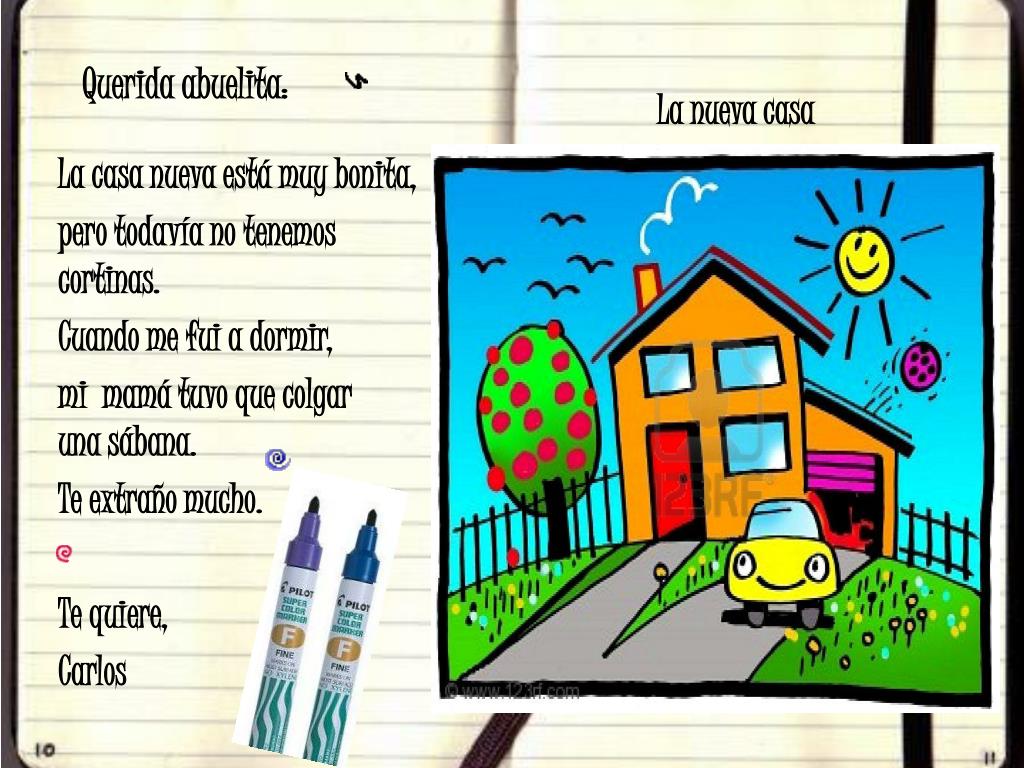 Querida abuelita:
La casa nueva está muy bonita,
pero todavía no tenemos
cortinas.
Cuando me fui a dormir,
mi mamá tuvo que colgar
una sábana.
Te extraño mucho.
Te quiere,
Carlos
10
La nueva casa
123RF
© www.123rf.com
11
PILOT
SUPER
COLOR
MARKER
F
FINE
PILOT
SUPER
COLOR
MARKER
F
FINE